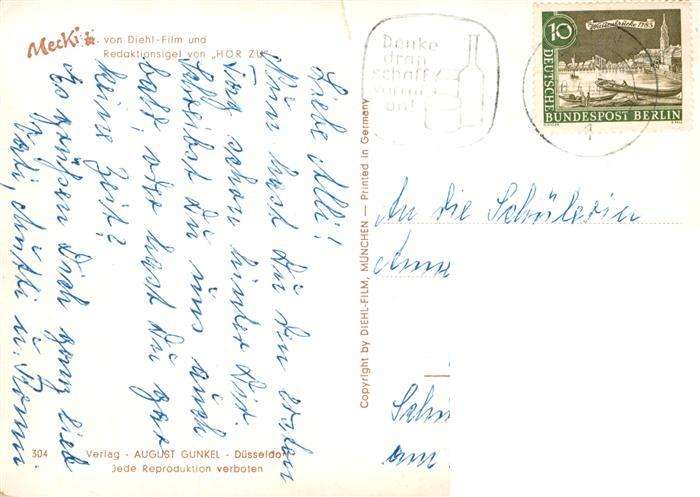 Mecki
von Diehl-Film und
Redaktionssigel von „HÖR ZU"
Liebe Alli!
Nun hast Du den ersten
Tag schon hinter Dir.
Schreibst Du uns auch
bald, oder hast Du gar
keine Zeit?
Es grüßen Dich ganz lieb
Vati, Mutti u. Romi
304
Verlag - AUGUST GUNKEL - Düsseldorf
Jede Reproduktion verboten
Copyright by DIEHL-FILM, MÜNCHEN — Printed in Germany
Denke
dran
schaff
Vorrat
an!
10
1785
DEUTSCHE
BUNDESPOST BERLIN
An die Schülerin
Anne
am